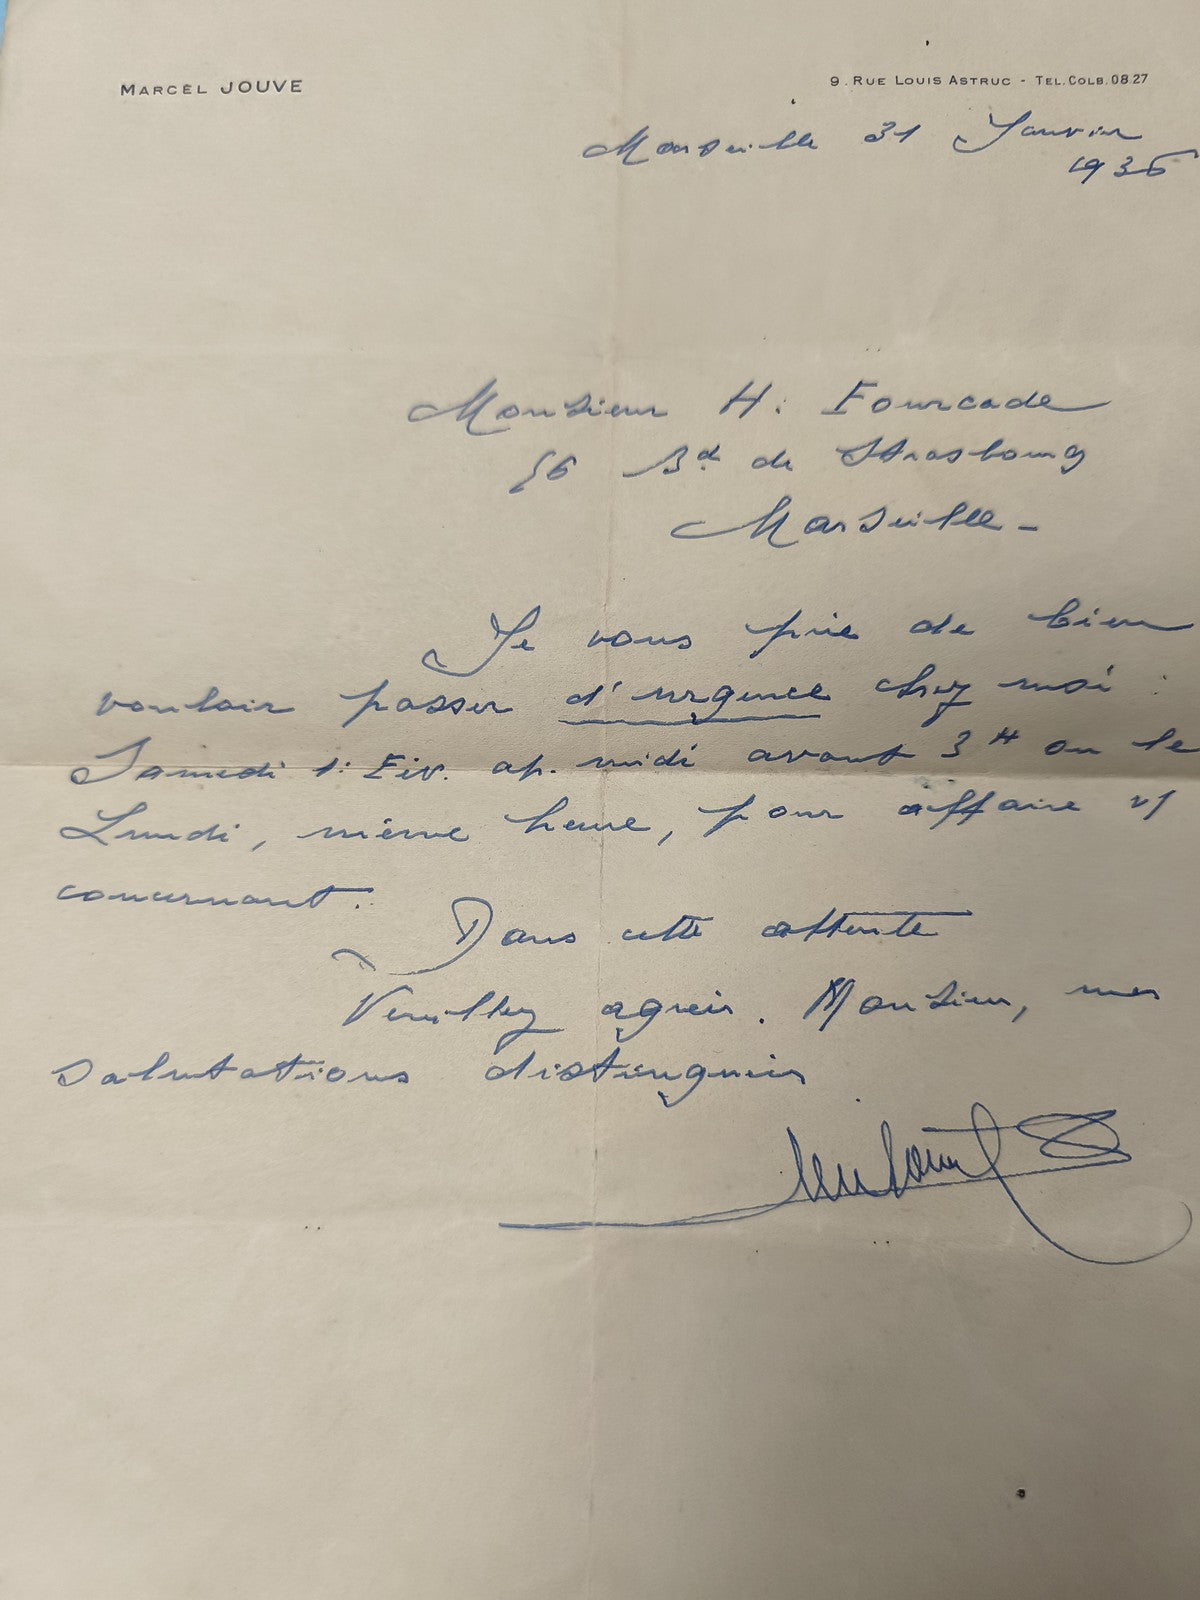 MARCEL JOUVE
9. RUE LOUIS ASTRUC - TEL. COLB. 08 27
Marseille 31 Janvier
1936
Monsieur H. Fourcade
56 Bd de Strasbourg
Marseille -
Je vous prie de bien
vouloir passer d'urgence chez moi
Samedi 1r Fév. ap. midi avant 3H ou le
Lundi, même heure, pour affaire v/
concernant.
Dans cette attente
Veuillez agréer. Monsieur, mes
salutations distinguées